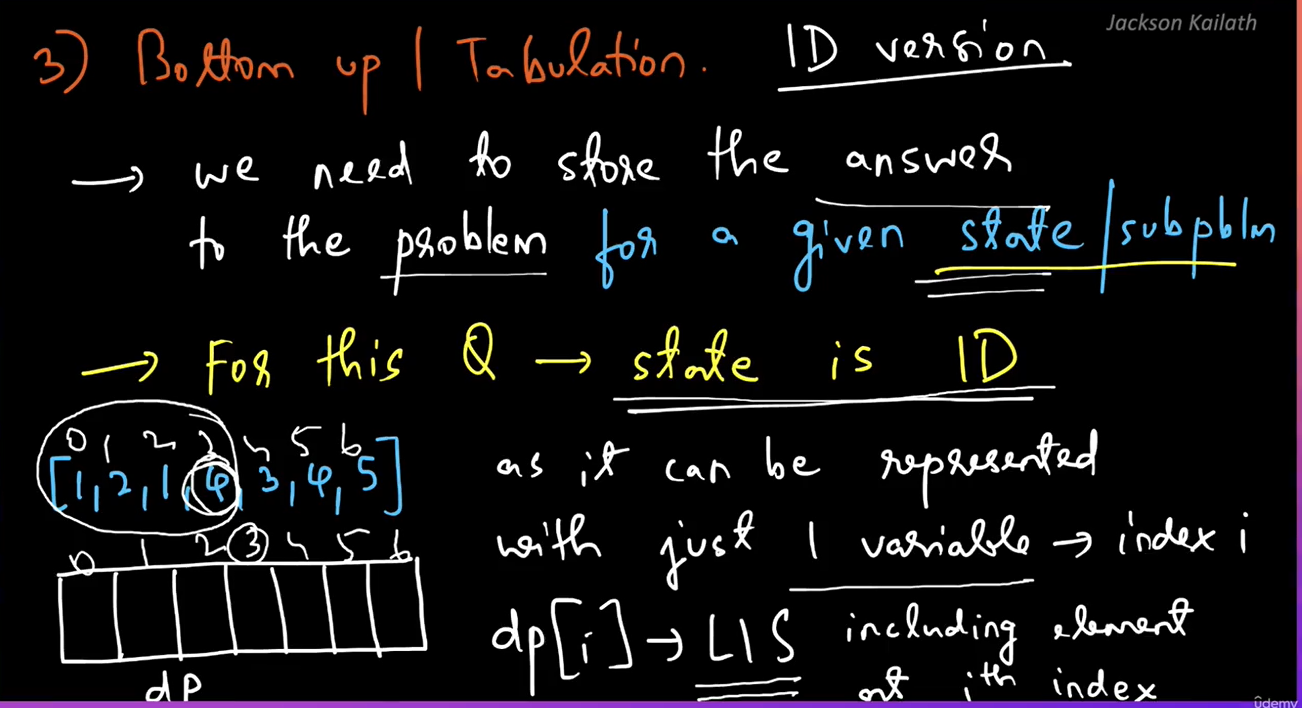 Jackson Kailath
3) Bottom up | Tabulation. 1D version
→ we need to store the answer
to the problem for a given state/subpblm
→ For this Q → state is 1D
0 1 2 3 4 5 6
[1, 2, 1, 4, 3, 4, 5]
as it can be represented
with just 1 variable → index i
0 1 2 3 4 5 6
dp[i] → LIS including element
at ith index
dp
ûdemy